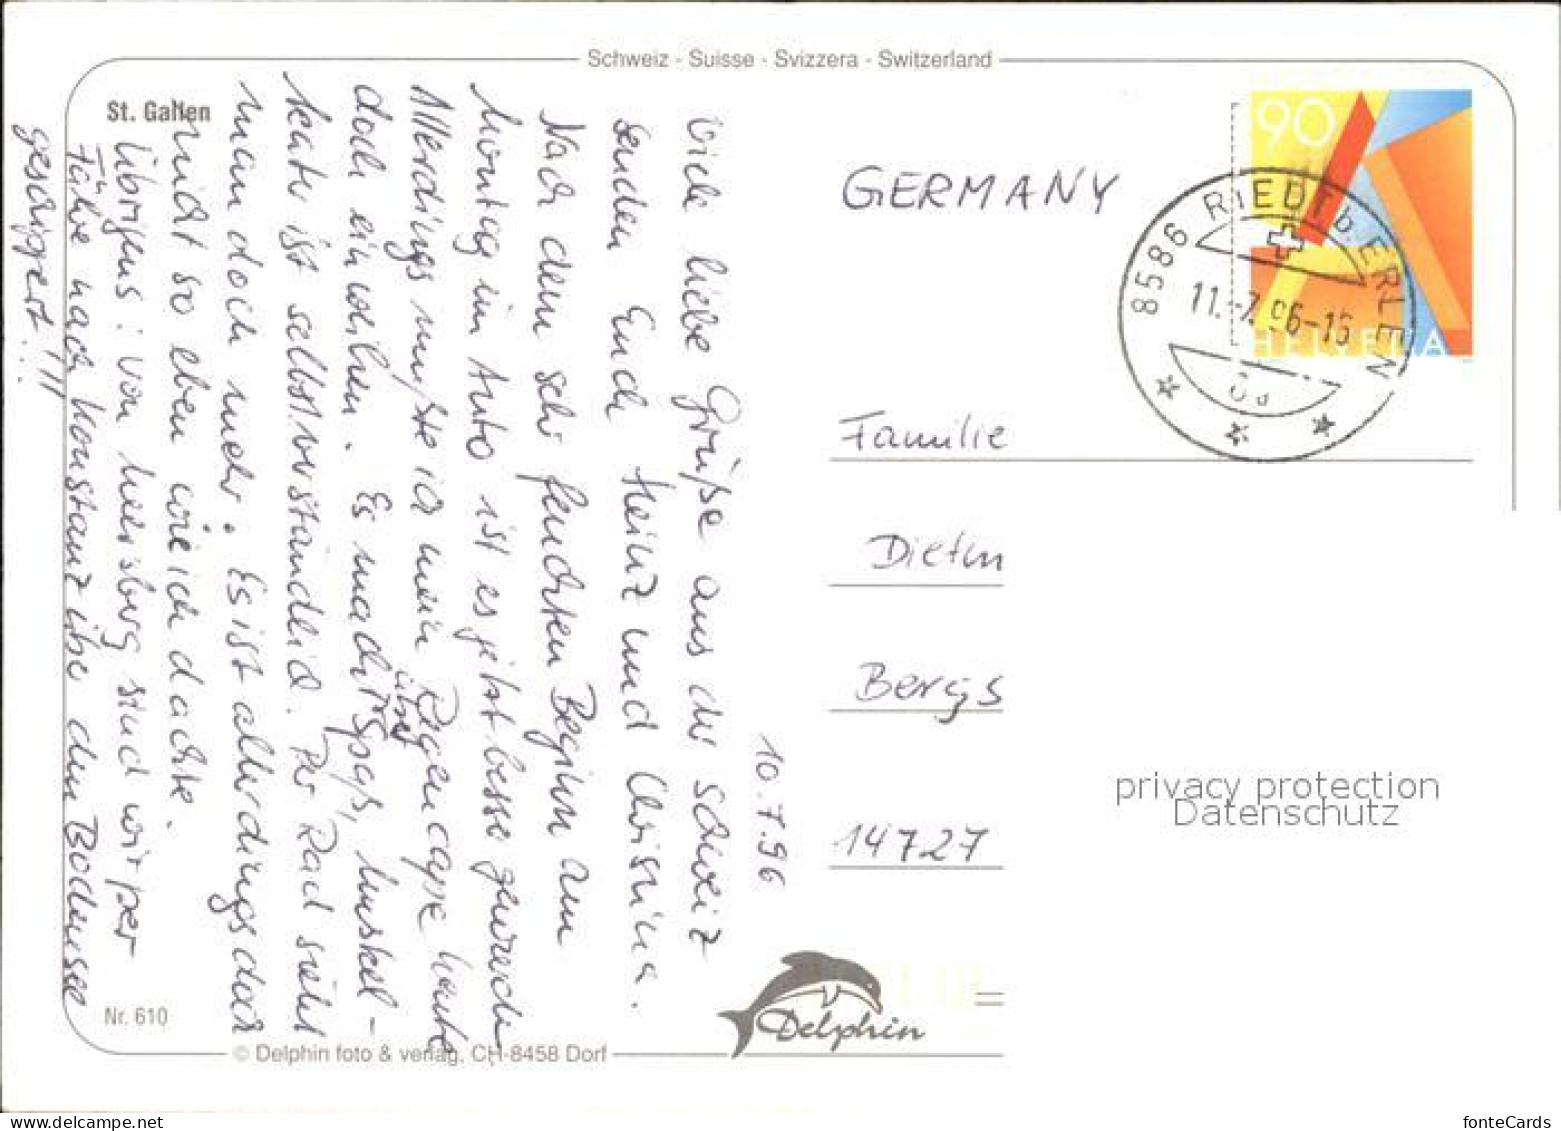 Schweiz - Suisse - Svizzera - Switzerland
St. Gallen
10.7.96
Viele liebe Grüße aus der Schweiz
senden Euch Heinz und Christina.
Nach dem sehr feuchten Beginn am
Montag im Auto ist es jetzt besser geworden
Allerdings mußte ich mein Regencape heute
doch einweihen. Es macht Spaß, Muskel-
kater ist selbstverständlich. Per Rad sieht
man doch mehr. Es ist allerdings dar
nicht so eben wie ich dachte.
Übrigens: von Meersburg sind wir per
Fähre nach Konstanz über den Bodensee
geschippert...!!!
GERMANY
90
HELVETIA
8586 RIEDT b. ERLEN
11.-7.96-16
Familie
Dietm
Bergs
14727
privacy protection
Datenschutz
Delphin
Nr. 610
© Delphin foto & verlag, CH-8458 Dorf
www.delcampe.net
fonteCards